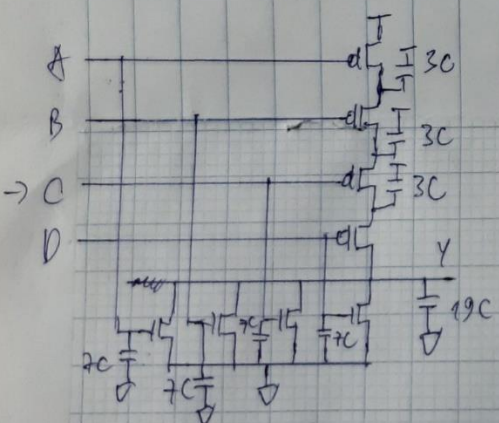 A
3C
B
3C
→ C
3C
D
Y
19C
7C
7C
7C
7C